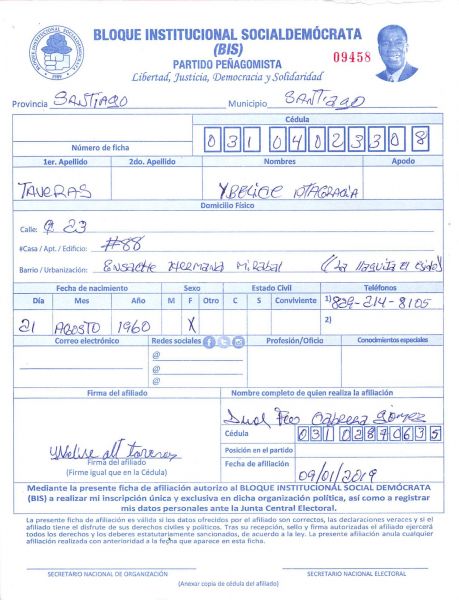 BLOQUE INSTITUCIONAL SOCIALDEMÓCRATA
(BIS)
PARTIDO PEÑAGOMISTA
09458
Libertad, Justicia, Democracia y Solidaridad
Provincia SANTIAGO Municipio SANTIAGO
Cédula
Número de ficha 031 0402330 8
1er. Apellido 2do. Apellido Nombres Apodo
TAVERAS YBELICE
Domicilio Físico
Calle: 23
#Casa / Apt. / Edificio: #88
Barrio / Urbanización: Ensache Hermana Mirabal (La
Fecha de nacimiento Sexo Estado Civil Teléfonos
Día Mes Año M F Otro C S Conviviente 1) 829-214-8105
21 AGOSTO 1960 X 2)
Correo electrónico Redes sociales Profesión/Oficio Conocimientos especiales
@
@
@
Firma del afiliado Nombre completo de quien realiza la afiliación
Cabrera Gómez
Cédula 031 0284463 5
Posición en el partido
Firma del afiliado
(Firme igual que en la Cédula)
Fecha de afiliación 09/01/2019
Mediante la presente ficha de afiliación autorizo al BLOQUE INSTITUCIONAL SOCIAL DEMÓCRATA
(BIS) a realizar mi inscripción única y exclusiva en dicha organización política, así como a registrar
mis datos personales ante la Junta Central Electoral.
La presente ficha de afiliación es válida si los datos ofrecidos por el afiliado son correctos, las declaraciones veraces y si el
afiliado tiene el disfrute de sus derechos civiles y políticos. Tras su recepción, sello y firma autorizadas el afiliado ejercerá
todos los derechos y los deberes estatutariamente sancionados, de acuerdo a la ley. La presente afiliación anula cualquier
afiliación realizada con anterioridad a la fecha que aparece en esta ficha.
SECRETARIO NACIONAL DE ORGANIZACIÓN SECRETARIO NACIONAL ELECTORAL
(Anexar copia de cédula del afiliado)